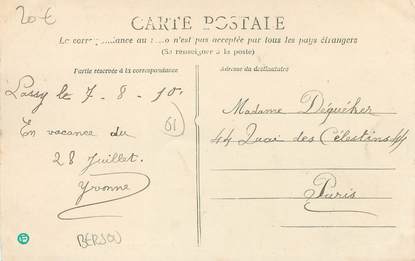 20€
CARTE POSTALE
La correspondance au recto n'est pas acceptée par tous les pays étrangers
(Se renseigner à la poste)
Partie réservée à la correspondance
Adresse du destinataire
Lassy le 7-8-10
En vacance du
28 Juillet.
Yvonne
61
BERJOU
Madame Déguéher
44 Quai des Célestins 44
Paris